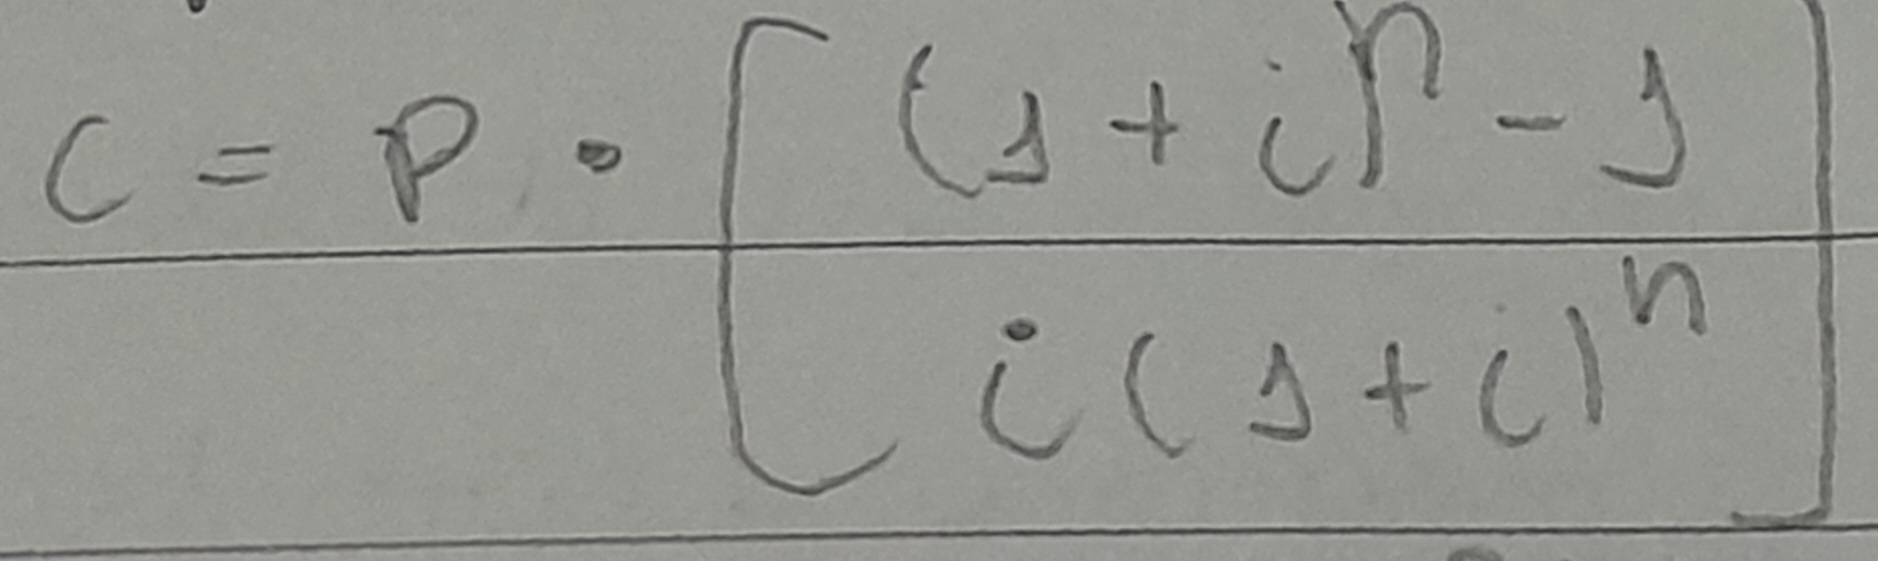 C = P . [ (1 + i)^n - 1
i (1 + i)^n ]